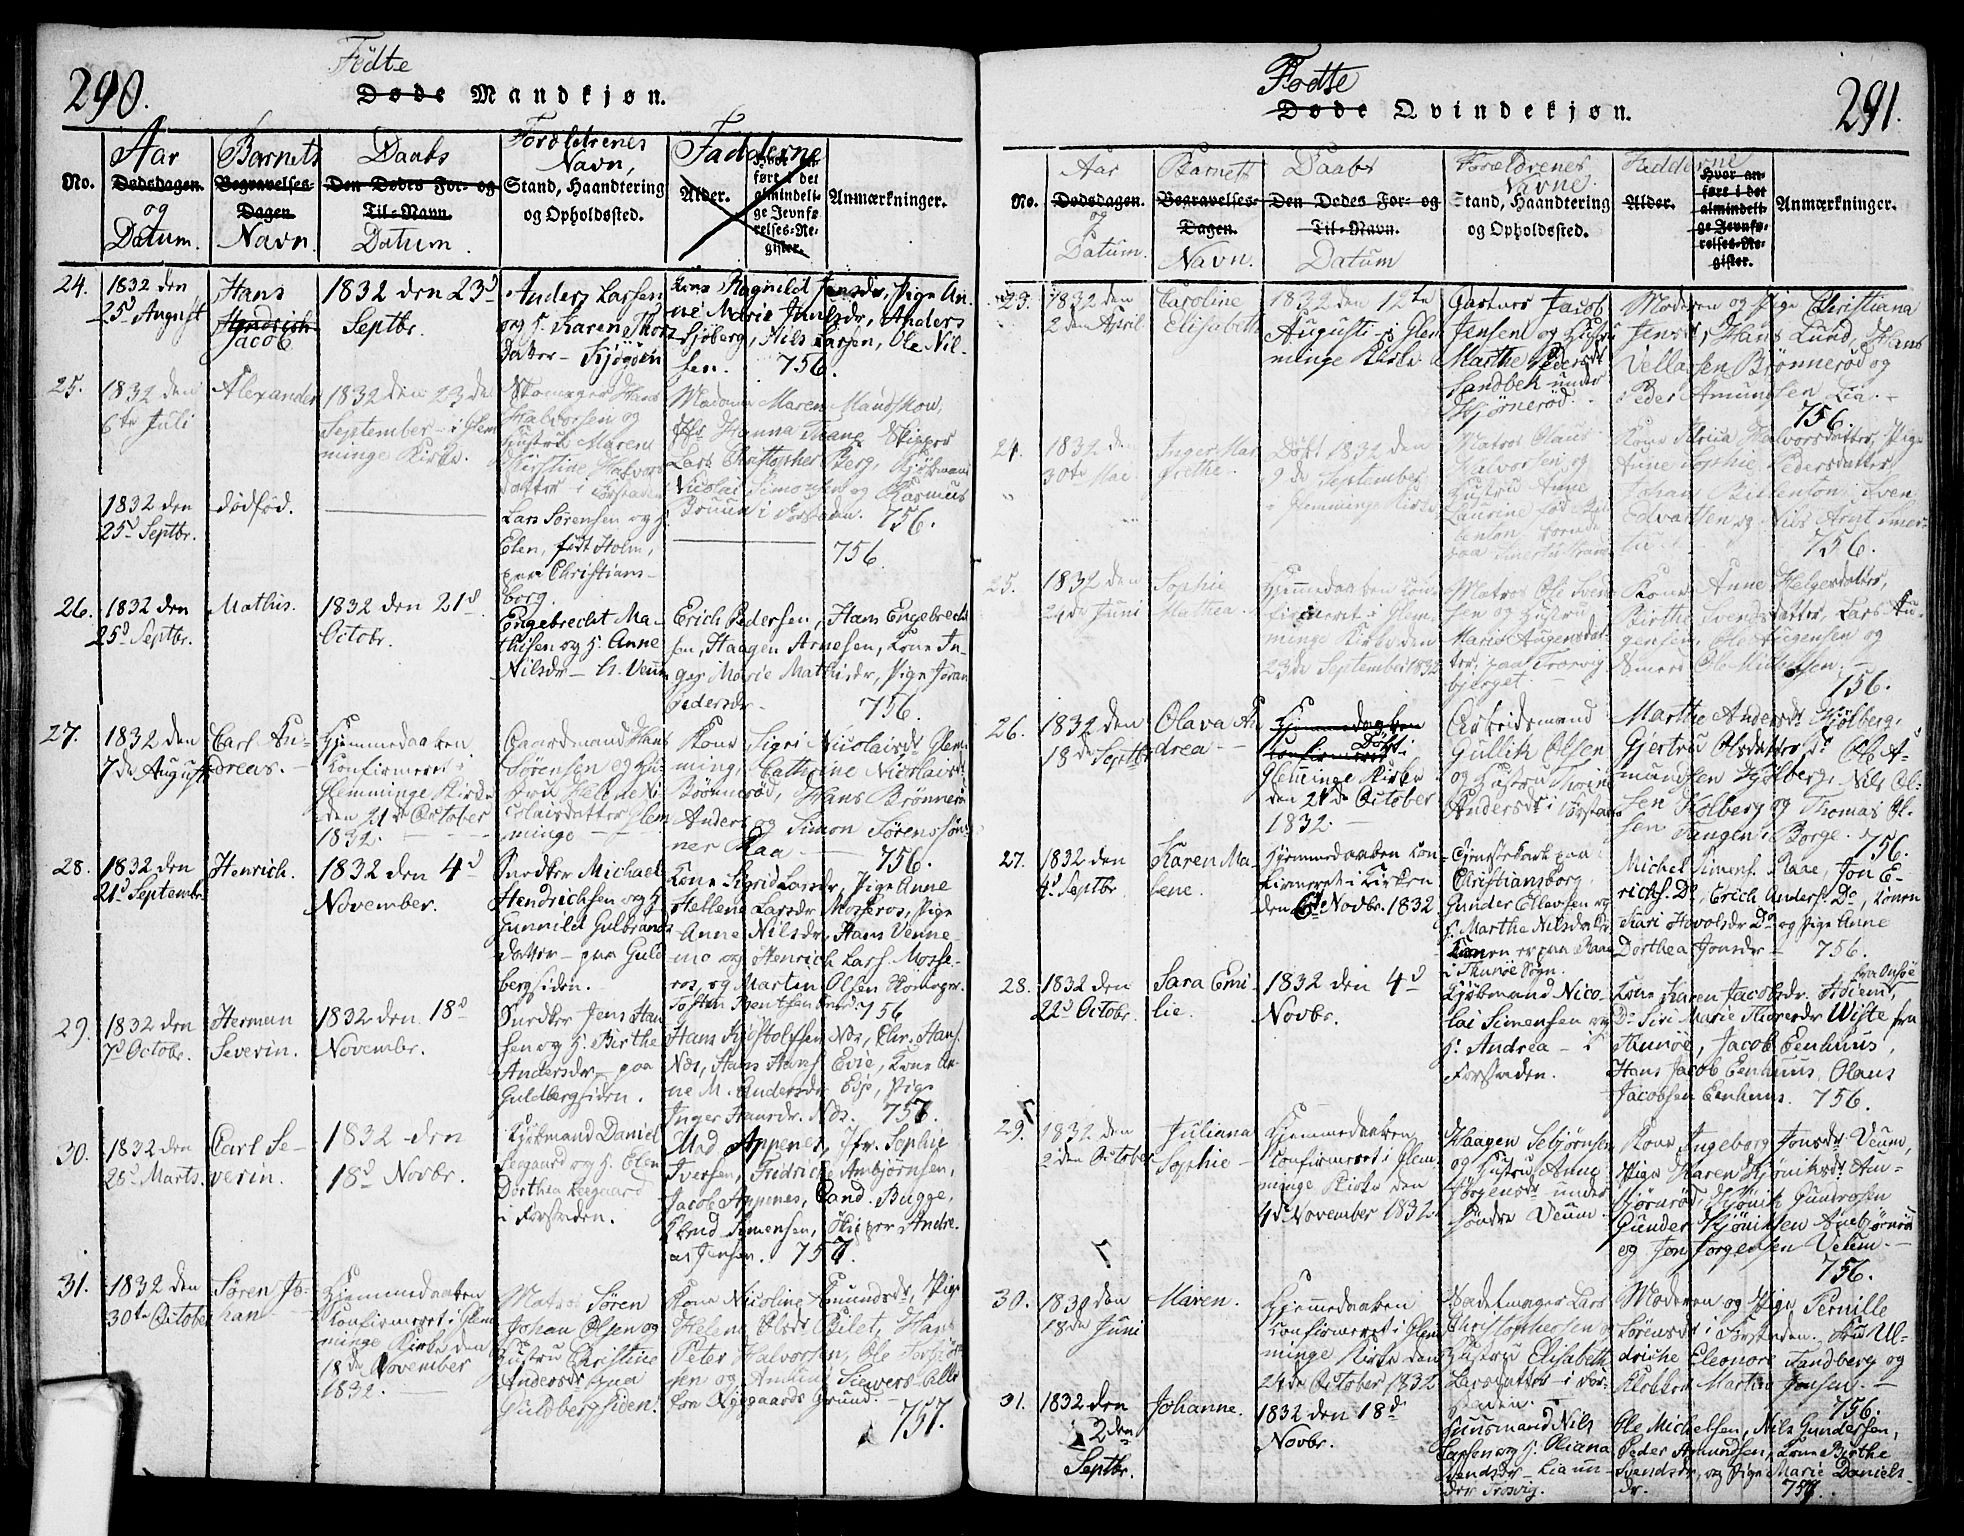 290.
Födte
Døde Mandkjøn.
No.
Aar
Dødsdagen.
og
Datum.
Barnets
Begravelses-
Dagen.
Navn.
Daabs
Den Dødes For- og
Til-Navn.
Datum.
Forældrenes
Navn,
Stand, Haandtering
og Opholdssted.
Fadderne
Alder.
Hvor an-
ført i det
almindeli-
ge Jevnfø-
relses-Re-
gister.
Anmærkninger.
24.
1832 den
25d August
Hans
Hendrich
Jacob
1832 den 23d
Septbr.
Anders Larsen
og H. Karen Thors
datter
Kone Ragnild Jensdr, Pige An-
ne Marie Jensdr, Anders
Sjøberg, Nils Larsen, Ole Nil-
sen. 756.
25.
1832 den
6te Juli
Alexander
1832 den 23de
September i Glem
minge Kirke.
Hans
Halvorsen og
Hustru Maren
Kirstine Halvors
datter i Forstaden
Madame Maren Mandskow,
Jfr Hanna Thane, Skipper
Lars Christopher Berg, Kjøbmand
Nicolai Simonsen og Rasmus
Bruun i Forstaden. 756.
1832 den
25d Septbr.
dödföd.
Lars Sørensen og H.
Elen, födt Holm,
paa Christians-
borg.
756.
26.
1832 den
25d Septbr.
Mathis.
1832 den 21d
Octobr.
Engebrecht Ma-
thisen og H. Anne
Nilsdr - N. Veum
Erich Pedersen, Hans Engebrecht
sen, Haagen Arnesen, Kone In-
ger Marie Mathisdr, Pige Joran
Pedersdr -
756.
27.
1832 den
7de August
Carl An-
dreas. -
Hjemmedaaben
Konfirmeret i
Glemminge Kirke
den 21de October
1832.
Gaardmand Hans
Sørensen og Hu-
stru Helene Ni-
colaisdatter Glem
minge
Kone Sigri Nicolaisdr. Glem-
ming, Cathrine Nicolaisdr
Brönneröd, Hans Brönneröd
Anders og Simon Sörenssön-
ner Raa
756.
28.
1832 den
21d Septembr.
Henrich.
1832 den 4d
November.
Snedker Michael
Hendrichsen og H.
Gunnild Gulbrands
datter - paa Guld
bergsiden.
Kone Sigrid Larsdr, Pige Anne
Hellene Larsdr Mosseros, Pige
Anne Nilsdr, Hans Venne-
mo og Henrich Lars. Mosse-
ros, og Martin Olsen
756
29.
1832 den
7d Octobr.
Herman
Severin.
1832 den 18d
Novembr.
Snedker Jens Han
sen og H. Birthe
Andersdr - paa
Guldbergsiden.
Hans Kristoffsen Næs, Chr. Hans.
Næs, Hans Hans. Evie, Kone An-
ne M. Andersdr Evje, Pige
Inger Hansdr. Næs. 757
30.
1832 den
28d Marts.
Carl Se-
verin.
1832 den
18d Novbr.
Kjøbmand Daniel
Leegaard og H. Elen
Dorthea Leegaard
i Forstaden.
Mad Appenes, Jfr. Sophie
Iversen, Fridriche Ambjørnsen,
Jacob Appenes, Cand. Bugge,
Knud Simensen, Skipper Andre-
as Jensen. 757
31.
1832 den
30te October
Søren Jo-
han
Hjemmedaaben
Konfirmeret i Glem
minge Kirke den
18de November
1832.
Matros Søren
Johan Olsen og
Hustru Christine
Andersdr paa
Guldbergsiden.
Kone Nicoline Amundsdr, Pige
Helene Olsdr Bilet, Hans
Peter Halvorsen, Ole Torbjör
sen og Amund Siewers alle
fra Nygaards Grund.
757.
Fødte
Døde Qvindekjøn.
291.
No.
Aar
Dødsdagen.
og
Datum.
Barnets
Begravelses-
Dagen.
Navn.
Daabs
Den Dødes For- og
Til-Navn.
Datum
Forældrenes
Navne.
Stand, Haandtering
og Opholdssted.
Fadderne
Alder.
Hvor an-
føre i det
almindeli-
ge Jevnfø-
relses-Re-
gister.
Anmærkninger.
23.
1832 den
2den April
Caroline
Elisabeth
1832 den 12te
August i Glem
minge Kirke
Jacob
Jensen og Hustru
Marthe Pedersdr
Sandbek under
Hjørneröd.
Moderen og Pige Christiana
Jensdr, Hans Lund, Hans
Brønneröd og
Peder Amundsen Lia.
756.
24.
1832 den
30te Mai
Inger Mar
grethe.
Döbt 1832 den
9de September
i Glemminge Kirke
Matros Olaus
Halvorsen og
Hustru Anne
Laurine föd
Kone Maria Halvorsdatter, Pige
Anne Sophie Pedersdatter,
Johan Billenton, Sven
Edvartsen og Nils Arnt
756.
25.
1832 den
24de Juni
Sophie
Mathea.
Hjemmedaaben Con-
firmeret i Glem-
minge Kirke den
23de September 1832
Matros Ole Svend
sen og Hustru
Maria Augensdat-
ter, paa Trosvig
bjerget.
Kone Anne Helgesdatter,
Birthe Svendsdatter, Lars Au-
gensen, Ole Augensen og
756.
26.
1832 den
18de Septbr
Olava An
drea -
Hjemmedaaben
Konfirmeret Döbt i
Glemminge Kirke
den 21de October
1832.
Arbeidsmand
Gullik Olsen
og Hustru Thorine
Andersdr i Forstaden
Marthe Andersdr Kjölberg,
Gjertru Olsdatter dr. Ole A-
mundsen Kjölberg, Nils Ol-
sen Kolberg og Thomas Ol-
sen Tangen i Borge. 756.
27.
1832 den
4d Septbr
Karen Ma-
hene.
Hjemmedaaben Con
firmeret i Kirken
den 6d Novbr. 1832
Tjenestekarl paa
Christiansborg
Gunder Ellevsen og
H. Marthe Nilsdatter
Konen er paa Raae
i Thunöe Sogn.
Michel Simens. Raae, Jon E-
richs. Do, Erich Anders. Do, Konen
Kari Hovolsdr Do og Pige Anne
Dorthea Jonsdr - 756.
28.
1832 den
22d Octobr.
Sara Emi-
lie.
1832 den 4d
Novbr.
Kjøbmand Nico-
lai Simensen og
H. Andrea - i
Forstaden.
Kone Karen Jacobsdr.
fra Onsöe
Do Siri Marie Thoresdr Wiste fra
Thunöe, Jacob Eenhuus,
Hans Jacob Eenhuus, Olaus
Jacobsen Eenhuus. 756.
29.
1832 den
2den October
Juliana
Sophie -
Hjemmedaaben
Konfirmeret i Glem-
minge Kirke den
4de November 1832.
Haagen Sebjørnsen
og Hustru Anne
Jørgensdr under
Söndre Veum.
Kone Ingeborg Jonsdr. Veum,
Pige Karen Kjöniksdr. Am-
björnröd, Kjönik Gundersen
Gunder Kjöniksen Ambjörnröd
og Jon Jorgensen Veum.
756.
30.
1832 den
18de Juni
Maren.
Hjemmedaaben
Konfirmeret i Glem
minge Kirke den
24de October 1832
Sadelmager Lars
Christophersen og
Hustru Elisabeth
Larsdatter i For-
staden.
Moderen og Pige Pernille
Sörensdr i Forstaden. Ul-
driche Eleonore Sandberg og
Klokker Martin Jensen.
756.
31.
1832 den
2den
Septbr.
Johanne.
1832 den 18d.
Novbr.
Huusmand Nils
Larsen og H. Oliana
Svendsdr - Lia un-
der Trosvig.
Ole Michelsen, Nils Gundersen,
Peder Amundsen, Kone Birthe
Svendsdr, og Pige Marie Daniels-
dr. 757.